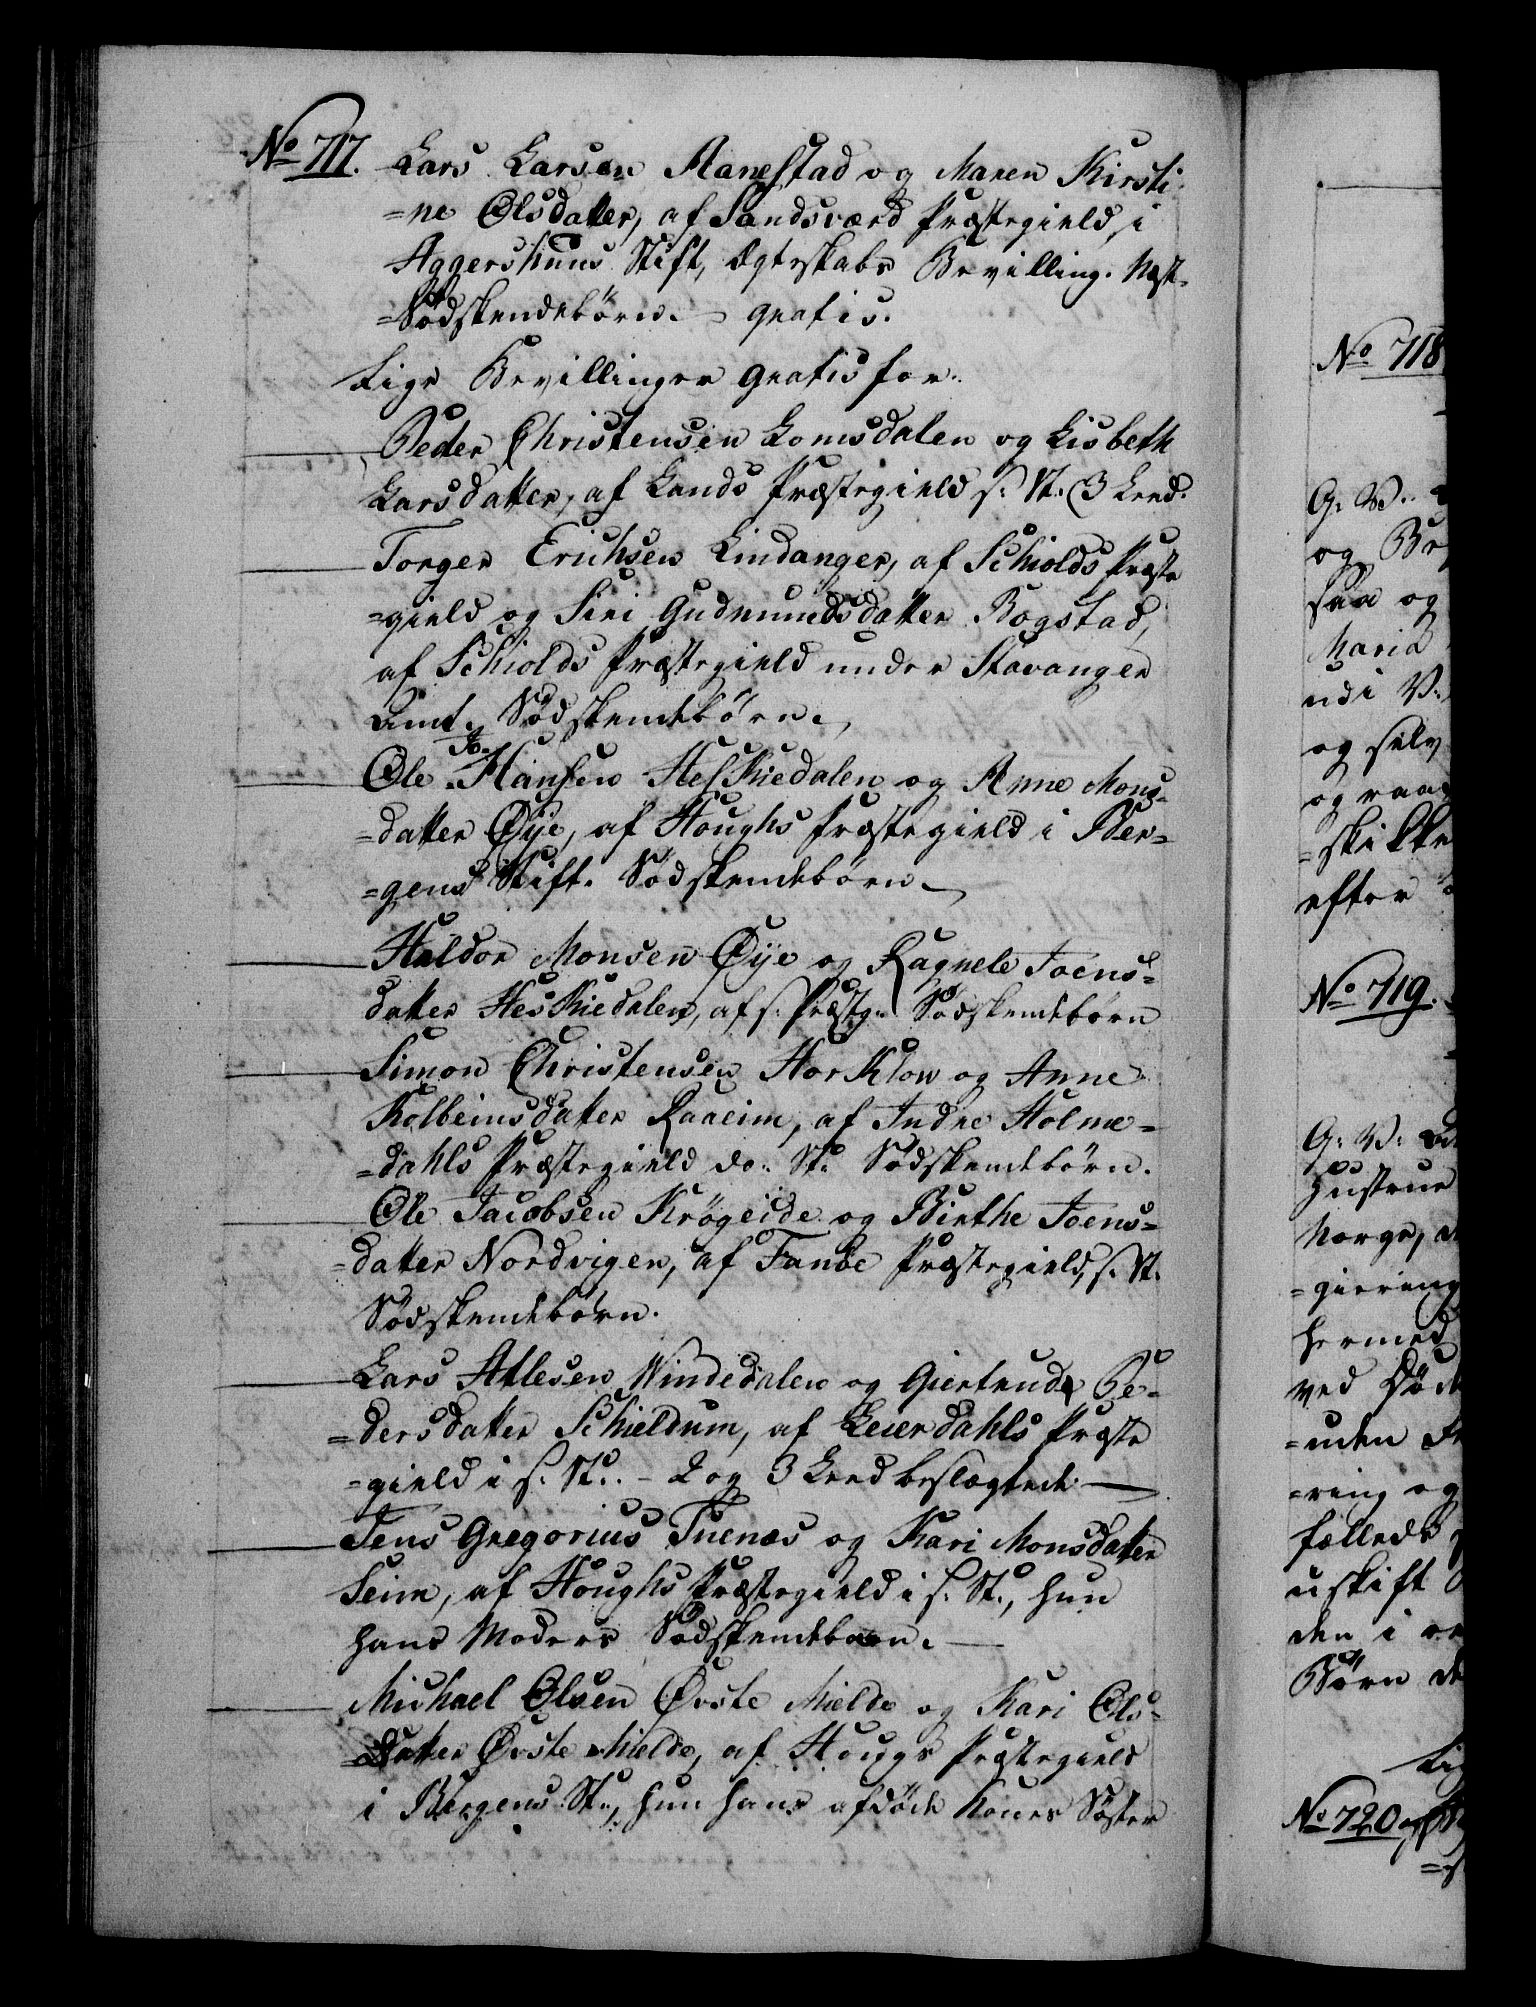 No 717. Lars Larsen Aanestad og Maren Kirsti-
=ne Olsdatter, af Sandsværd Præstegield, i
Aggershuus Stift, Ægteskabs Bevilling. Næst-
=Södskendebörn. gratis.
Lige Bevillinger gratis for.
Peder Christensen Lomsdalen og Lisbeth
Larsdatter, af Lands Præstegield s. St. 3 Leed.
Torger Erichsen Lindanger, af Schiolds Præste
=gield og Siri Gudmundsdatter Bogstad,
af Schiolds Præstegield under Stavanger
Amt. Södskendebörn.
Ole Jo. Hansen Heskiedalen og Anne Mons-
=datter Øye, af Houghs Præstegield i Ber=
=gens Stift. Södskendebörn.
Haldor Monsen Øye og Ragnele Joens=
datter Heskiedalen, af s. Præstg. Södskendebörn
Simon Christensen Horklow og Anne
Kolbeinsdatter Raaeim, af Indre Holme=
=dahls Præstegield do. St. Södskendebörn.
Ole Jacobsen Krøgeide og Birthe Joens=
=datter Nordvigen, af Fanöe Præstegield, s. St.
Södskendebörn.
Lars Atlesen Windedalen og Giertrude Pe-
=dersdatter Schieldum, af Leierdahls Præste
=gield i s. St. - 2 og 3 Leed beslægtede
Jens Gregorius Tuenæs og Kari Monsdatter
Seim, af Houghs Præstegield i s. St., hun
hans Moders Södskendebarn.
Michael Olsen Øvste Mielde og Kari Ols-
=datter Øvste Mielde, af Hougs Præstegield
i Bergens St., hun hans afdöde Kones Söster
No 718
G. V.
og
saa og
Maria
udi V.
og selv
og
=skikke
efter
No 719.
G. V.
Hustrue
Norge,
=giering
hermed
ved Død
=uden
=ring og
fælleds
uskift
den i
Börn
No 720